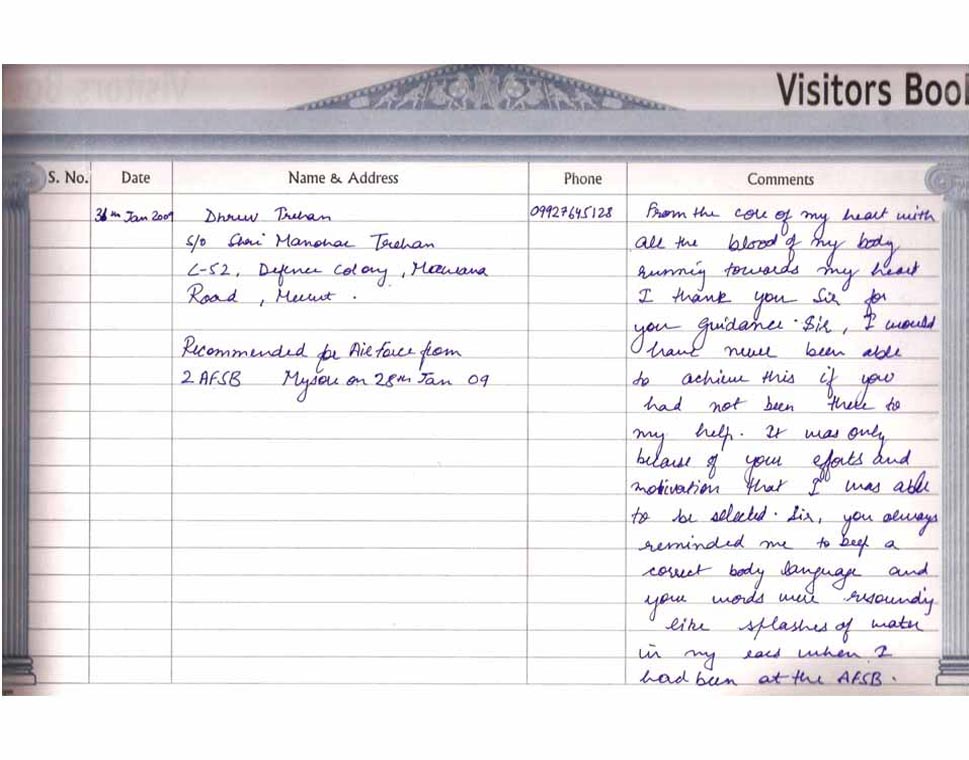 Visitors Book
S. No. Date Name & Address Phone Comments
Jan 2009 Dhruv Trehan 09927645128 From the core of my heart with
S/o Shri Manohar Trehan all the blood of my body
C-52, Defence Colony, Mawana running towards my heart
Road, Meerut. I thank you Sir for
you guidance. Sir, I would
Recommended for Air Force from have never been able
2 AFSB Mysore on 28th Jan 09 to achieve this if you
had not been there to
my help. It was only
because of your efforts and
motivation that I was able
to be selected. Sir, you always
reminded me to keep a
correct body language and
your words were resounding
like splashes of water
in my ears when I
had been at the AFSB.